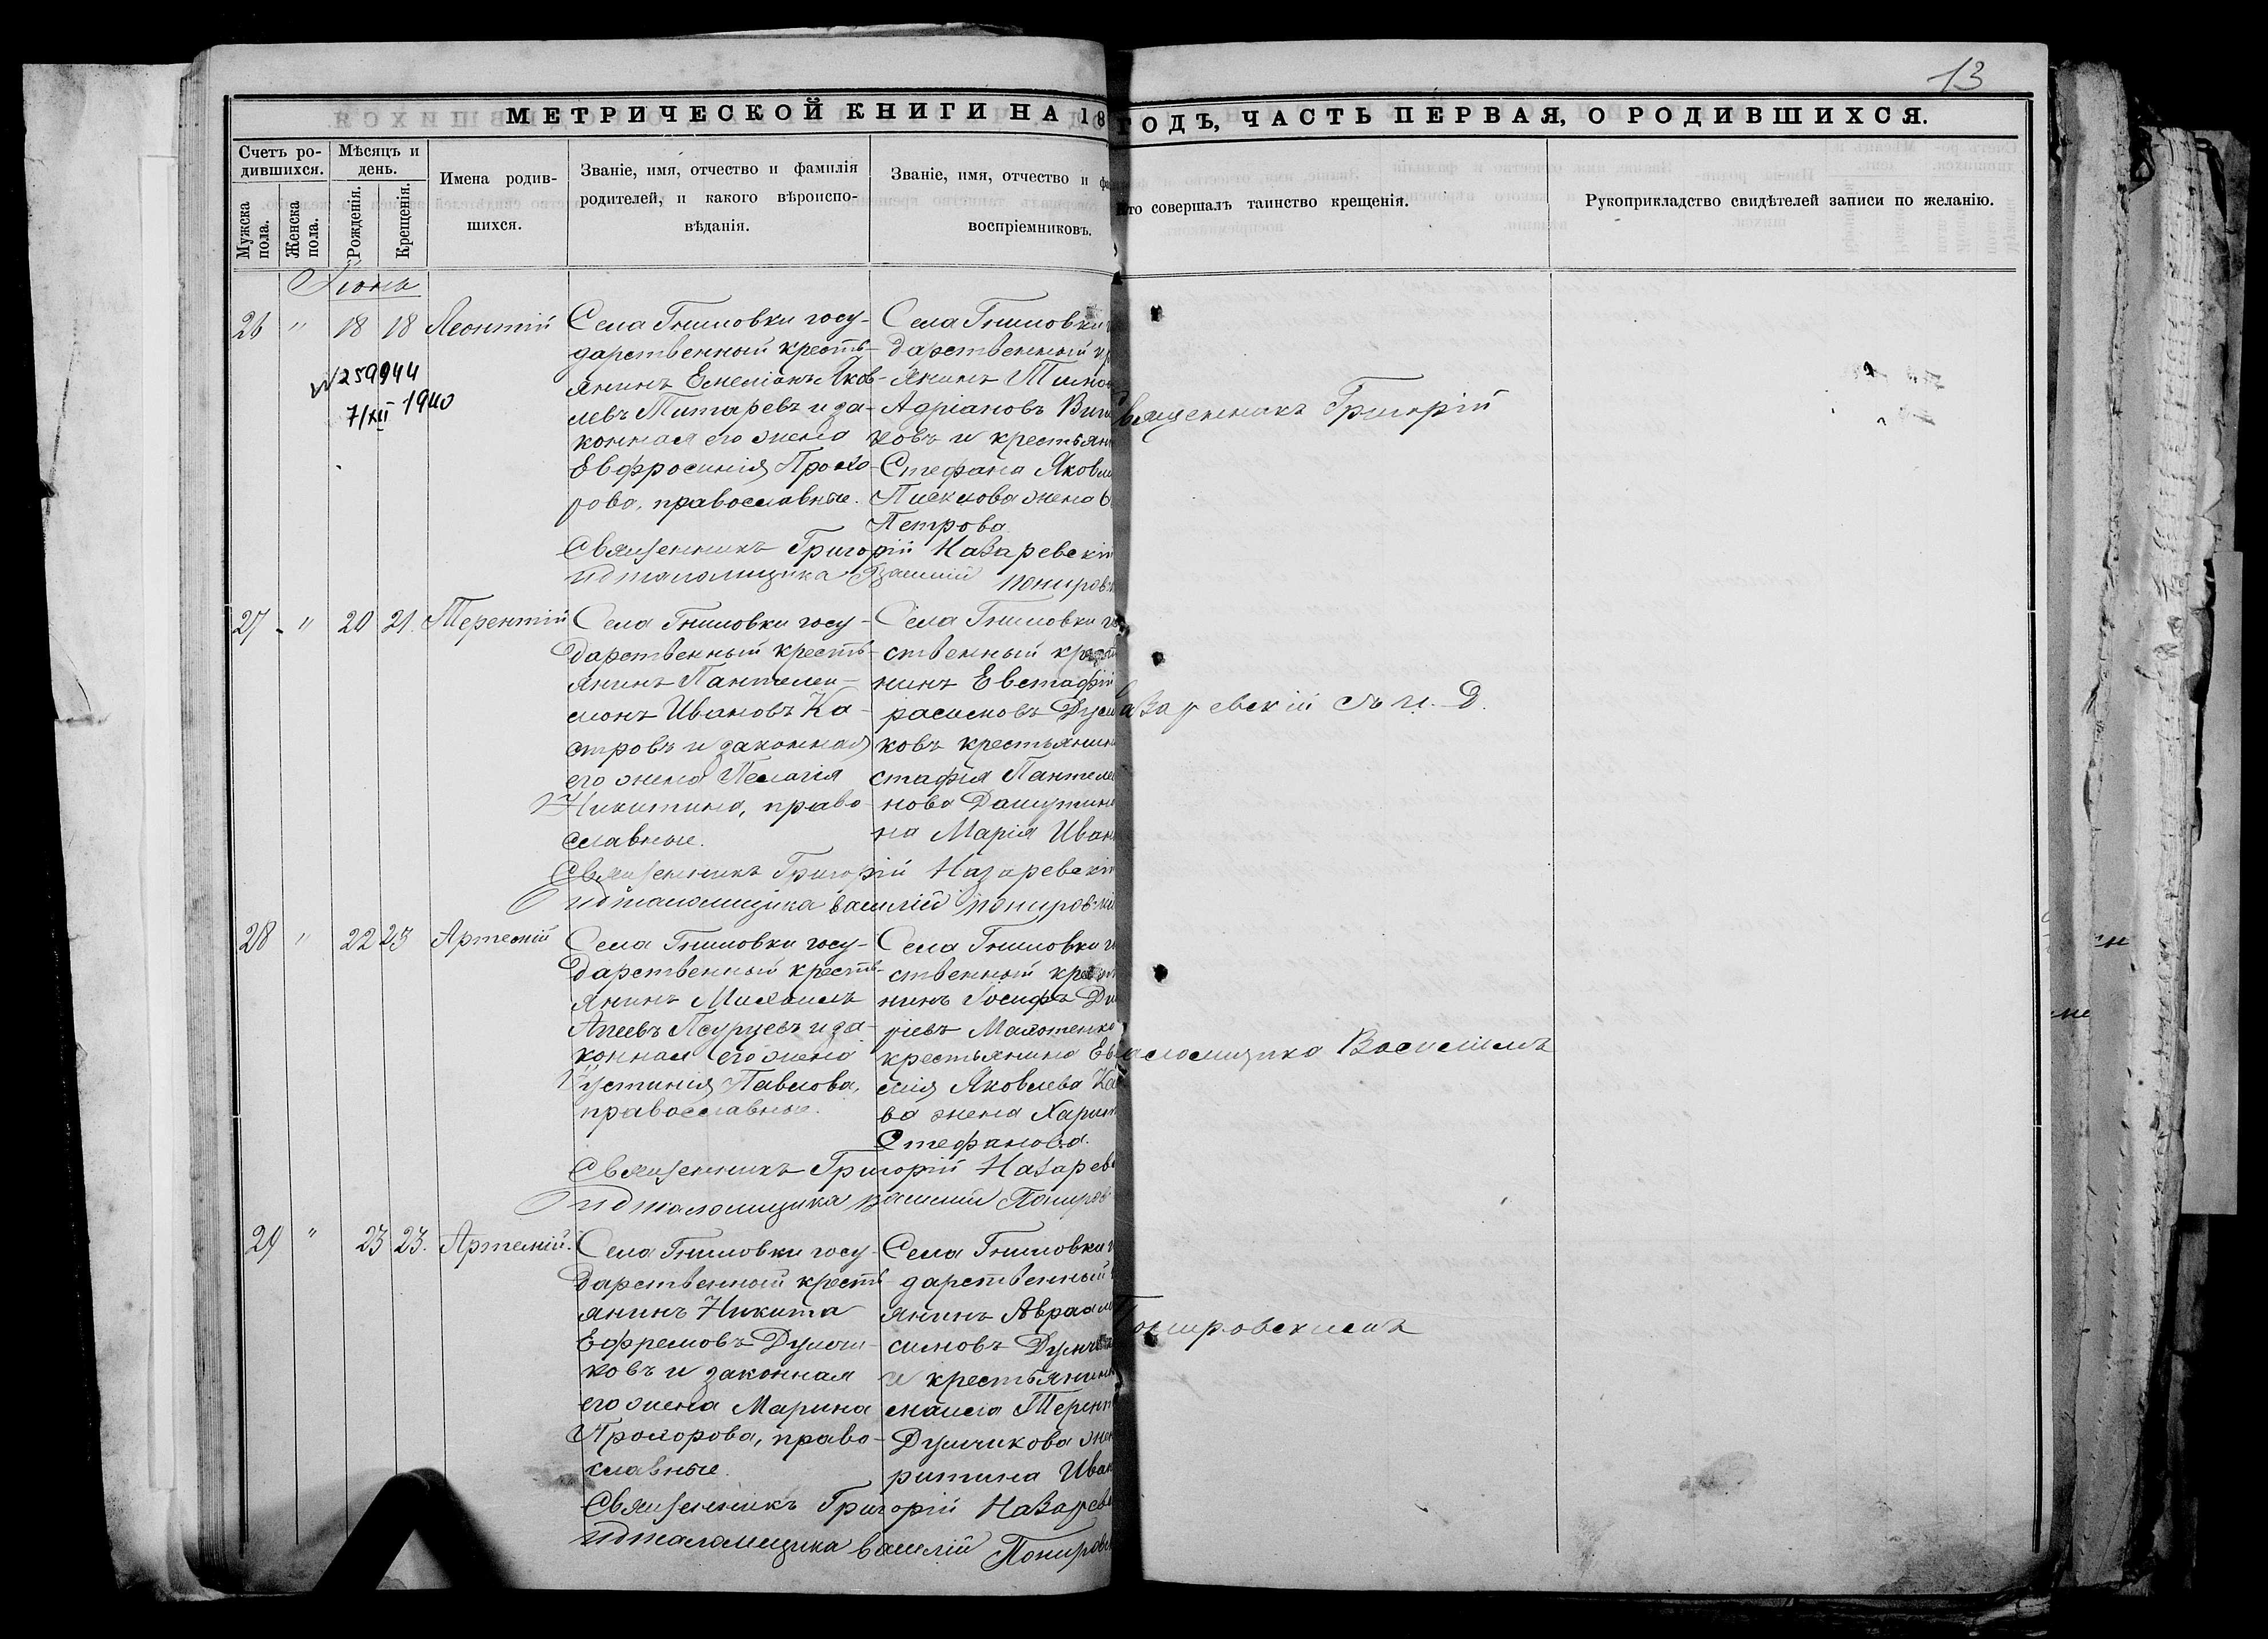 13
МЕТРИЧЕСКОЙ КНИГИ НА 18 ГОДЪ, ЧАСТЬ ПЕРВАЯ, О РОДИВШИХСЯ.
Счетъ ро-
дившихся.
Мужска пола.
Женска пола.
Мѣсяцъ и
день.
Рожденія.
Крещенія.
Имена родив-
шихся.
Званіе, имя, отчество и фамилія
родителей, и какого вѣроиспо-
вѣданія.
Званіе, имя, отчество и фа
воспріемниковъ.
то совершалъ таинство крещенія.
Рукоприкладство свидѣтелей записи по желанію.
Іюнь
26 " 18 18 Леонтій
№259944
7/XII 1940
Села Гниловки госу-
дарственный кресть-
янинъ Емеліанъ Яков-
левъ Титаревъ и за-
конная его жена
Евфросинія Прохо-
рова, православные.
Села Гниловки
дарственный кр
янинъ
Адріановъ
ковъ и крестьян
Стефана Яковл
жена
Петрова
Священникъ Григорій Назаревскій
Псаломщика Василій Понировск
27 " 20 21. Терентій
Села Гниловки госу-
дарственный кресть-
янинъ Пантелеи-
монъ Ивановъ Ка-
стровъ и законная
его жена Пелагія
Никитина, право-
славные.
Села Гниловки г
ственный крест
нинъ Евстафій
ковъ крестьянин
стафія Пантеле
нова
на Марія Иван
Священникъ Григорій Назаревскій
Псаломщика Василій Понировскі
28 " 22 23 Артемій
Села Гниловки госу-
дарственный кресть-
янинъ Михаилъ
и за-
конная его жена
Іустинія Павлова,
православные.
Села Гниловки г
ственный крест
нинъ Іосифъ
ріевъ
крестьянина Ев
мія Яковлева Ка
ва жена Харит
Стефанова.
Священникъ Григорій Назарев
Псаломщика Василій Пониров
29 " 23 23. Артемій.
Села Гниловки госу-
дарственный кресть-
янинъ Никита
Ефремовъ Думчи-
ковъ и законная
его жена Марина
Прохорова, право-
славные.
Села Гниловки г
дарственный
янинъ Авраам
симовъ Думчи
и крестьянин
Терент
Думчикова жен
ритина Иван
Священникъ Григорій Назарев
Псаломщика Василій Понировс
Священникъ Григорій
азаревскій съ и. д.
аломщика Василіемъ
Понировскимъ